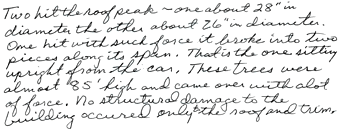 Two hit the roof peak - one about 28" in
diameter the other about 26" in diameter.
One hit with such force it broke into two
pieces along its span. That is the one sitting
upright from the car. These trees were
almost 85' high and came over with alot
of force. No structural damage to the
building occured only the roof and trim.